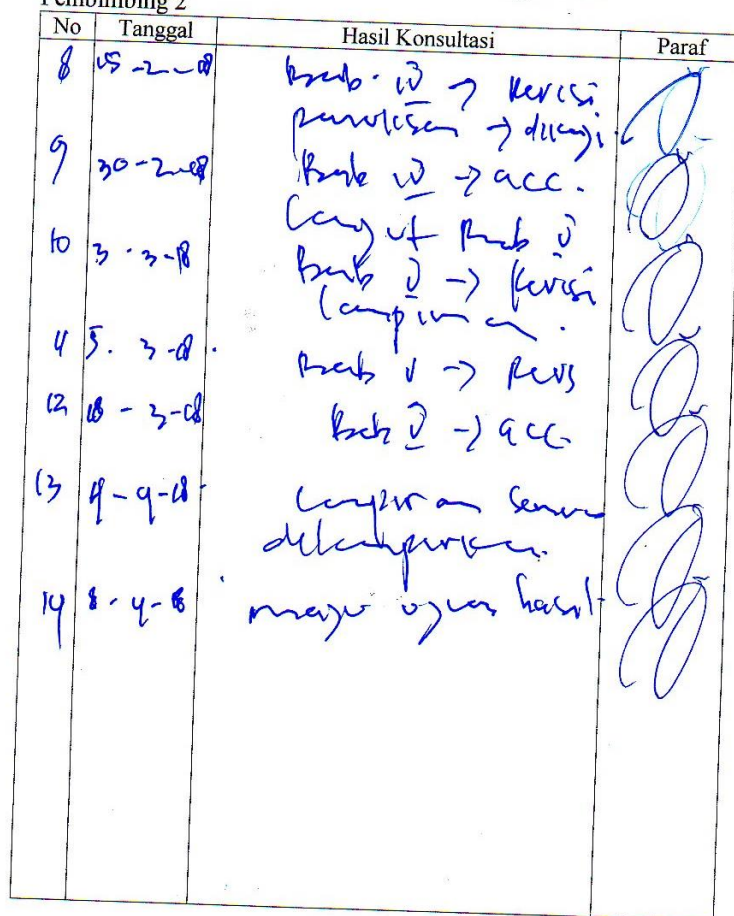 Pembimbing 2
No Tanggal Hasil Konsultasi Paraf
8 Bab IV → Revisi
penulisan →
9 Bab IV → acc.
Lanjut Bab V
10 3-3-18 Bab V → Revisi
Lampiran.
11 5. 3-18. Bab V → Revs
12 18-3-18 Bab V → acc.
13 Lampiran semua
dilampirkan.
14 8-4-18 maju ujian hasil